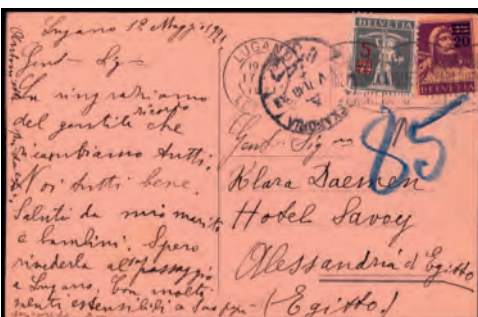 Lugano 12 Maggio 1921
Gent. Sig.
La ringraziamo
del gentile ricordo che
ricambiamo tutti.
Noi tutti bene.
Saluti da mio marito
e bambini. Spero
rivederla al passaggio
a Lugano. Con molti
HELVETIA
5
HELVETIA
20
LUGANO
85
Gent. Sig
Klara Daemen
Hotel Savoy
Alessandria d'Egitto
(Egitto.)